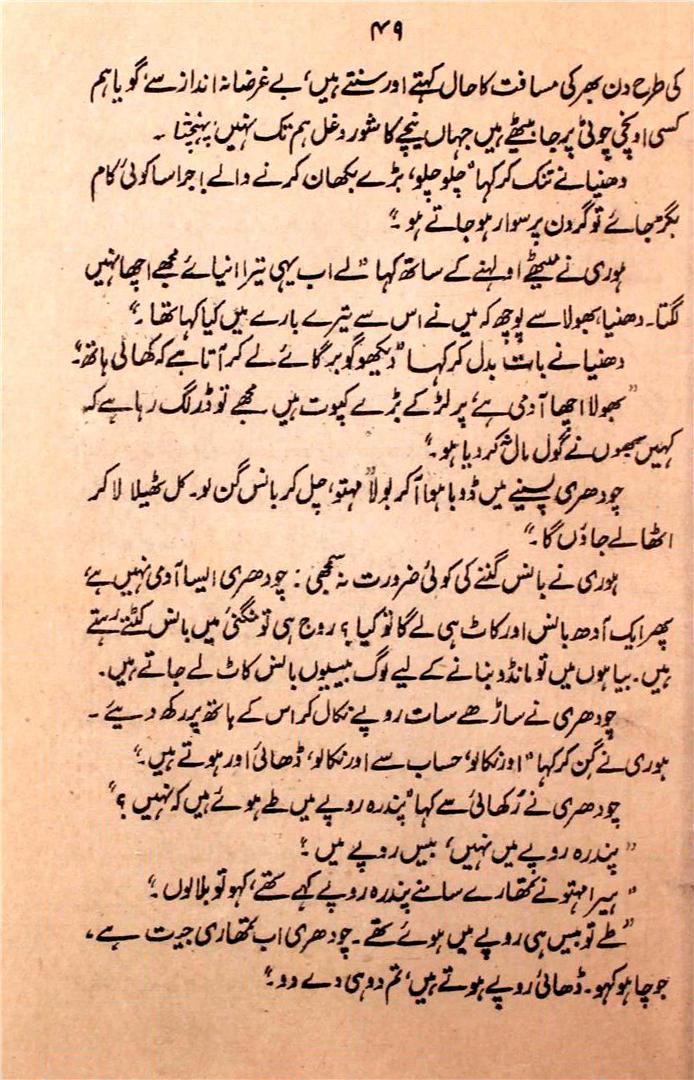 ۴۹
کی طرح دن بھر کی مسافت کا حال کہتے اور سنتے ہیں، بے غرضانہ انداز سے، گویا ہم
کسی اونچی چوٹی پر جا بیٹھے ہیں جہاں نیچے کا شور و غل ہم تک نہیں پہنچتا۔
دھنیا نے تنک کر کہا "چلو چلو، بڑے بکھان کرنے والے! جرا سا کوئی کام
بگڑ جائے تو گردن پر سوار ہو جاتے ہو۔"
ہوری نے میٹھے اولہنے کے ساتھ کہا "لے اب یہی تیرا انیائے مجھے اچھا نہیں
لگتا۔ دھنیا، بھولا سے پوچھ کہ میں نے اس سے تیرے بارے میں کیا کہا تھا۔"
دھنیا نے بات بدل کر کہا "دیکھو گوبر گائے لے کر آتا ہے کہ کھالی ہاتھ۔"
"بھولا اچھا آدمی ہے، پر لڑکے بڑے کپوت ہیں مجھے تو ڈر لگ رہا ہے کہ
کہیں سبھوں نے گول مال نہ کر دیا ہو۔"
چودھری پسینے میں ڈوبا ہوا آ کر بولا "مہتو، چل کر بانس گن لو۔ کل ٹھیلا لا کر
اٹھا لے جاؤں گا۔"
ہوری نے بانس گننے کی کوئی ضرورت نہ سمجھی: چودھری ایسا آدمی نہیں ہے،
پھر ایک آدھ بانس اور کاٹ ہی لے گا تو کیا؟ روج ہی تو منگنی میں بانس کٹتے رہتے
ہیں۔ بیاہوں میں تو مانڈو بنانے کے لیے لوگ بیسیوں بانس کاٹ لے جاتے ہیں۔
چودھری نے ساڑھے سات روپے نکال کر اس کے ہاتھ پر رکھ دیئے۔
ہوری نے گن کر کہا "اور نکالو، حساب سے اور نکالو، ڈھائی اور ہوتے ہیں۔"
چودھری نے رُکھائی سے کہا "پندرہ روپے میں طے ہوئے ہیں کہ نہیں؟"
"پندرہ روپے میں نہیں، بیس روپے میں۔"
"ہیرا مہتو نے تمھارے سامنے پندرہ روپے کہے تھے، کہو تو بلا لوں۔"
"طے تو بیس ہی روپے میں ہوئے تھے۔ چودھری اب تمھاری جیت ہے،
جو چاہو کہو۔ ڈھائی روپے ہوتے ہیں، تم دو ہی دے دو۔"